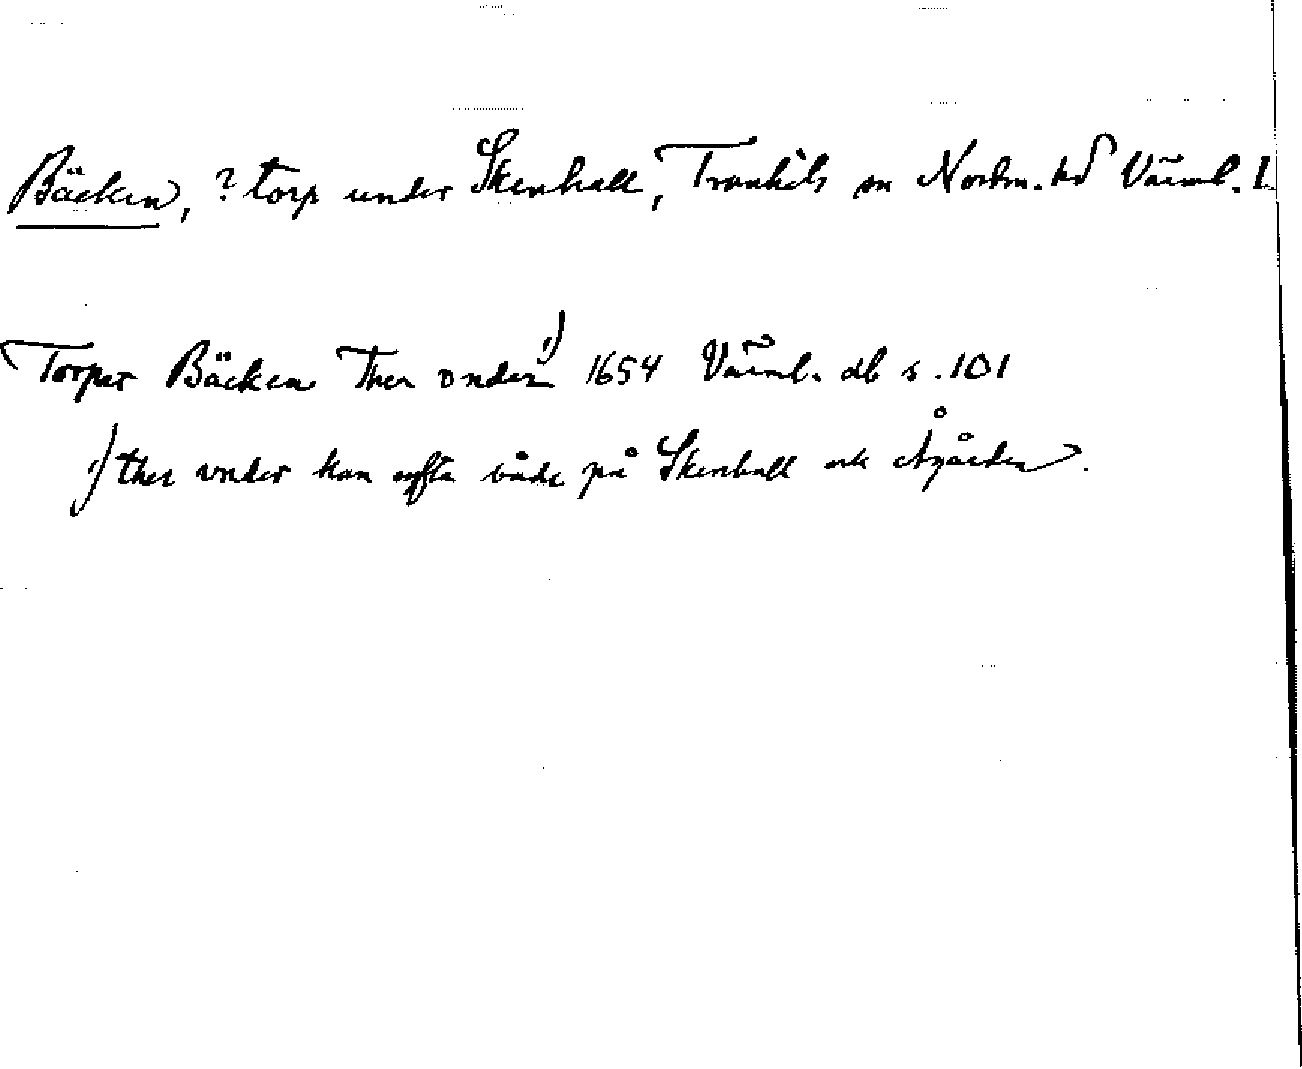 Bäcken, ? torp under Skenhall, Trankils sn Nordm. hd Värml. l.
Torpet Bäcken Ther vnder 1) 1654 Värml. db s. 101
1) ther vnder kan syfta både på Skenhall och Ågården.